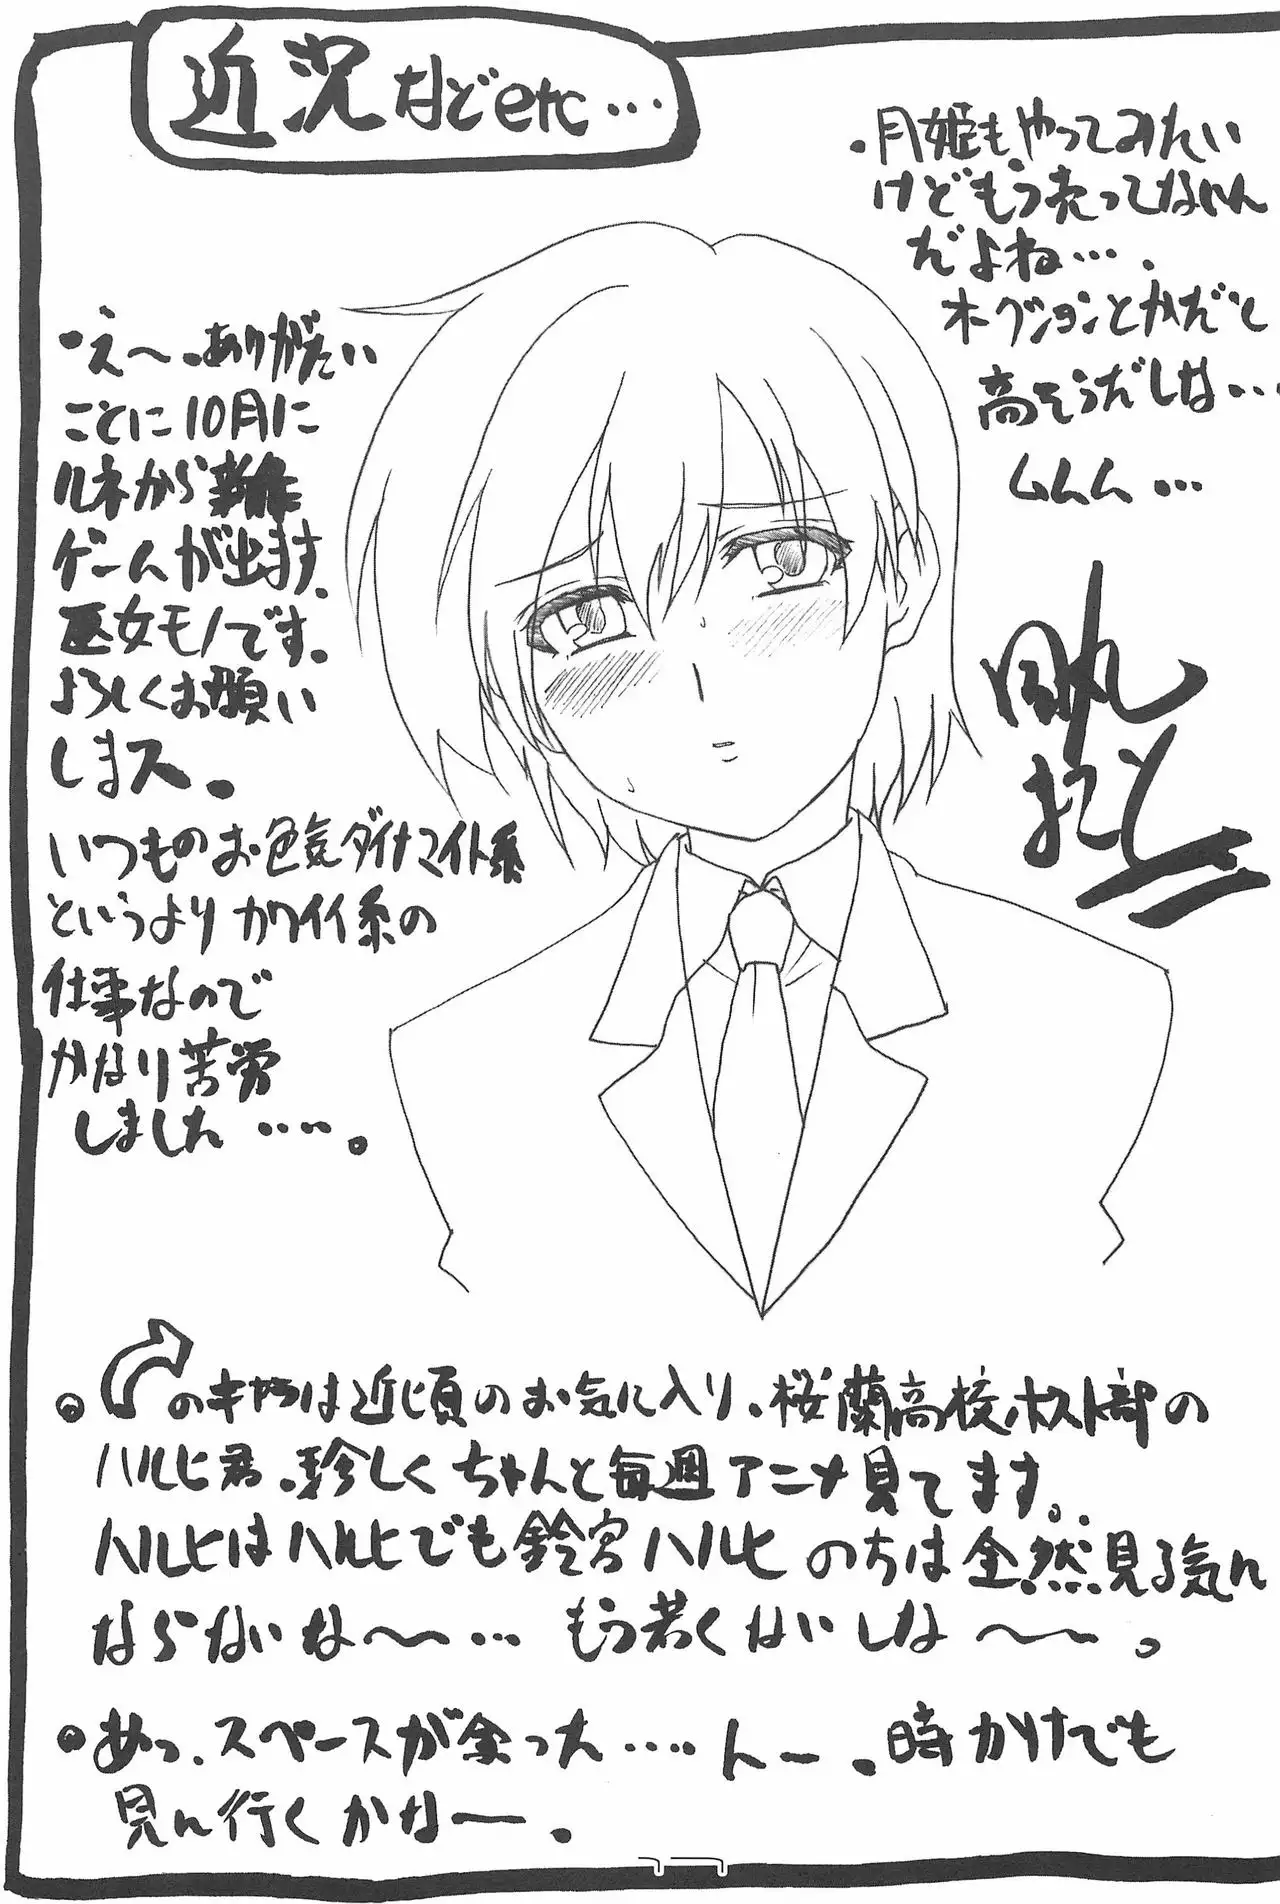 近況などetc…
・え～。ありがたい
ことに10月に
ルネから新作
ゲームが出ます。
巫女モノです。
よろしくお願い
しまス。
いつものお色気ダイナマイト系
というよりカワイイ系の
仕事なので
かなり苦労
しました‥‥。
・月姫もやってみたい
けどもう売ってないん
だよね…．
オークションとかだと
高そうだしな…
ムムム…
のキャラは近頃のお気に入り、桜蘭高校ホスト部の
ハルヒ君。珍しくちゃんと毎週アニメ見てます。
ハルヒはハルヒでも鈴宮ハルヒのちは全然見る気に
ならないな～…もう若くはいしな～。
あっ、スペースが余った‥‥んー。時かけでも
見に行くかなー。